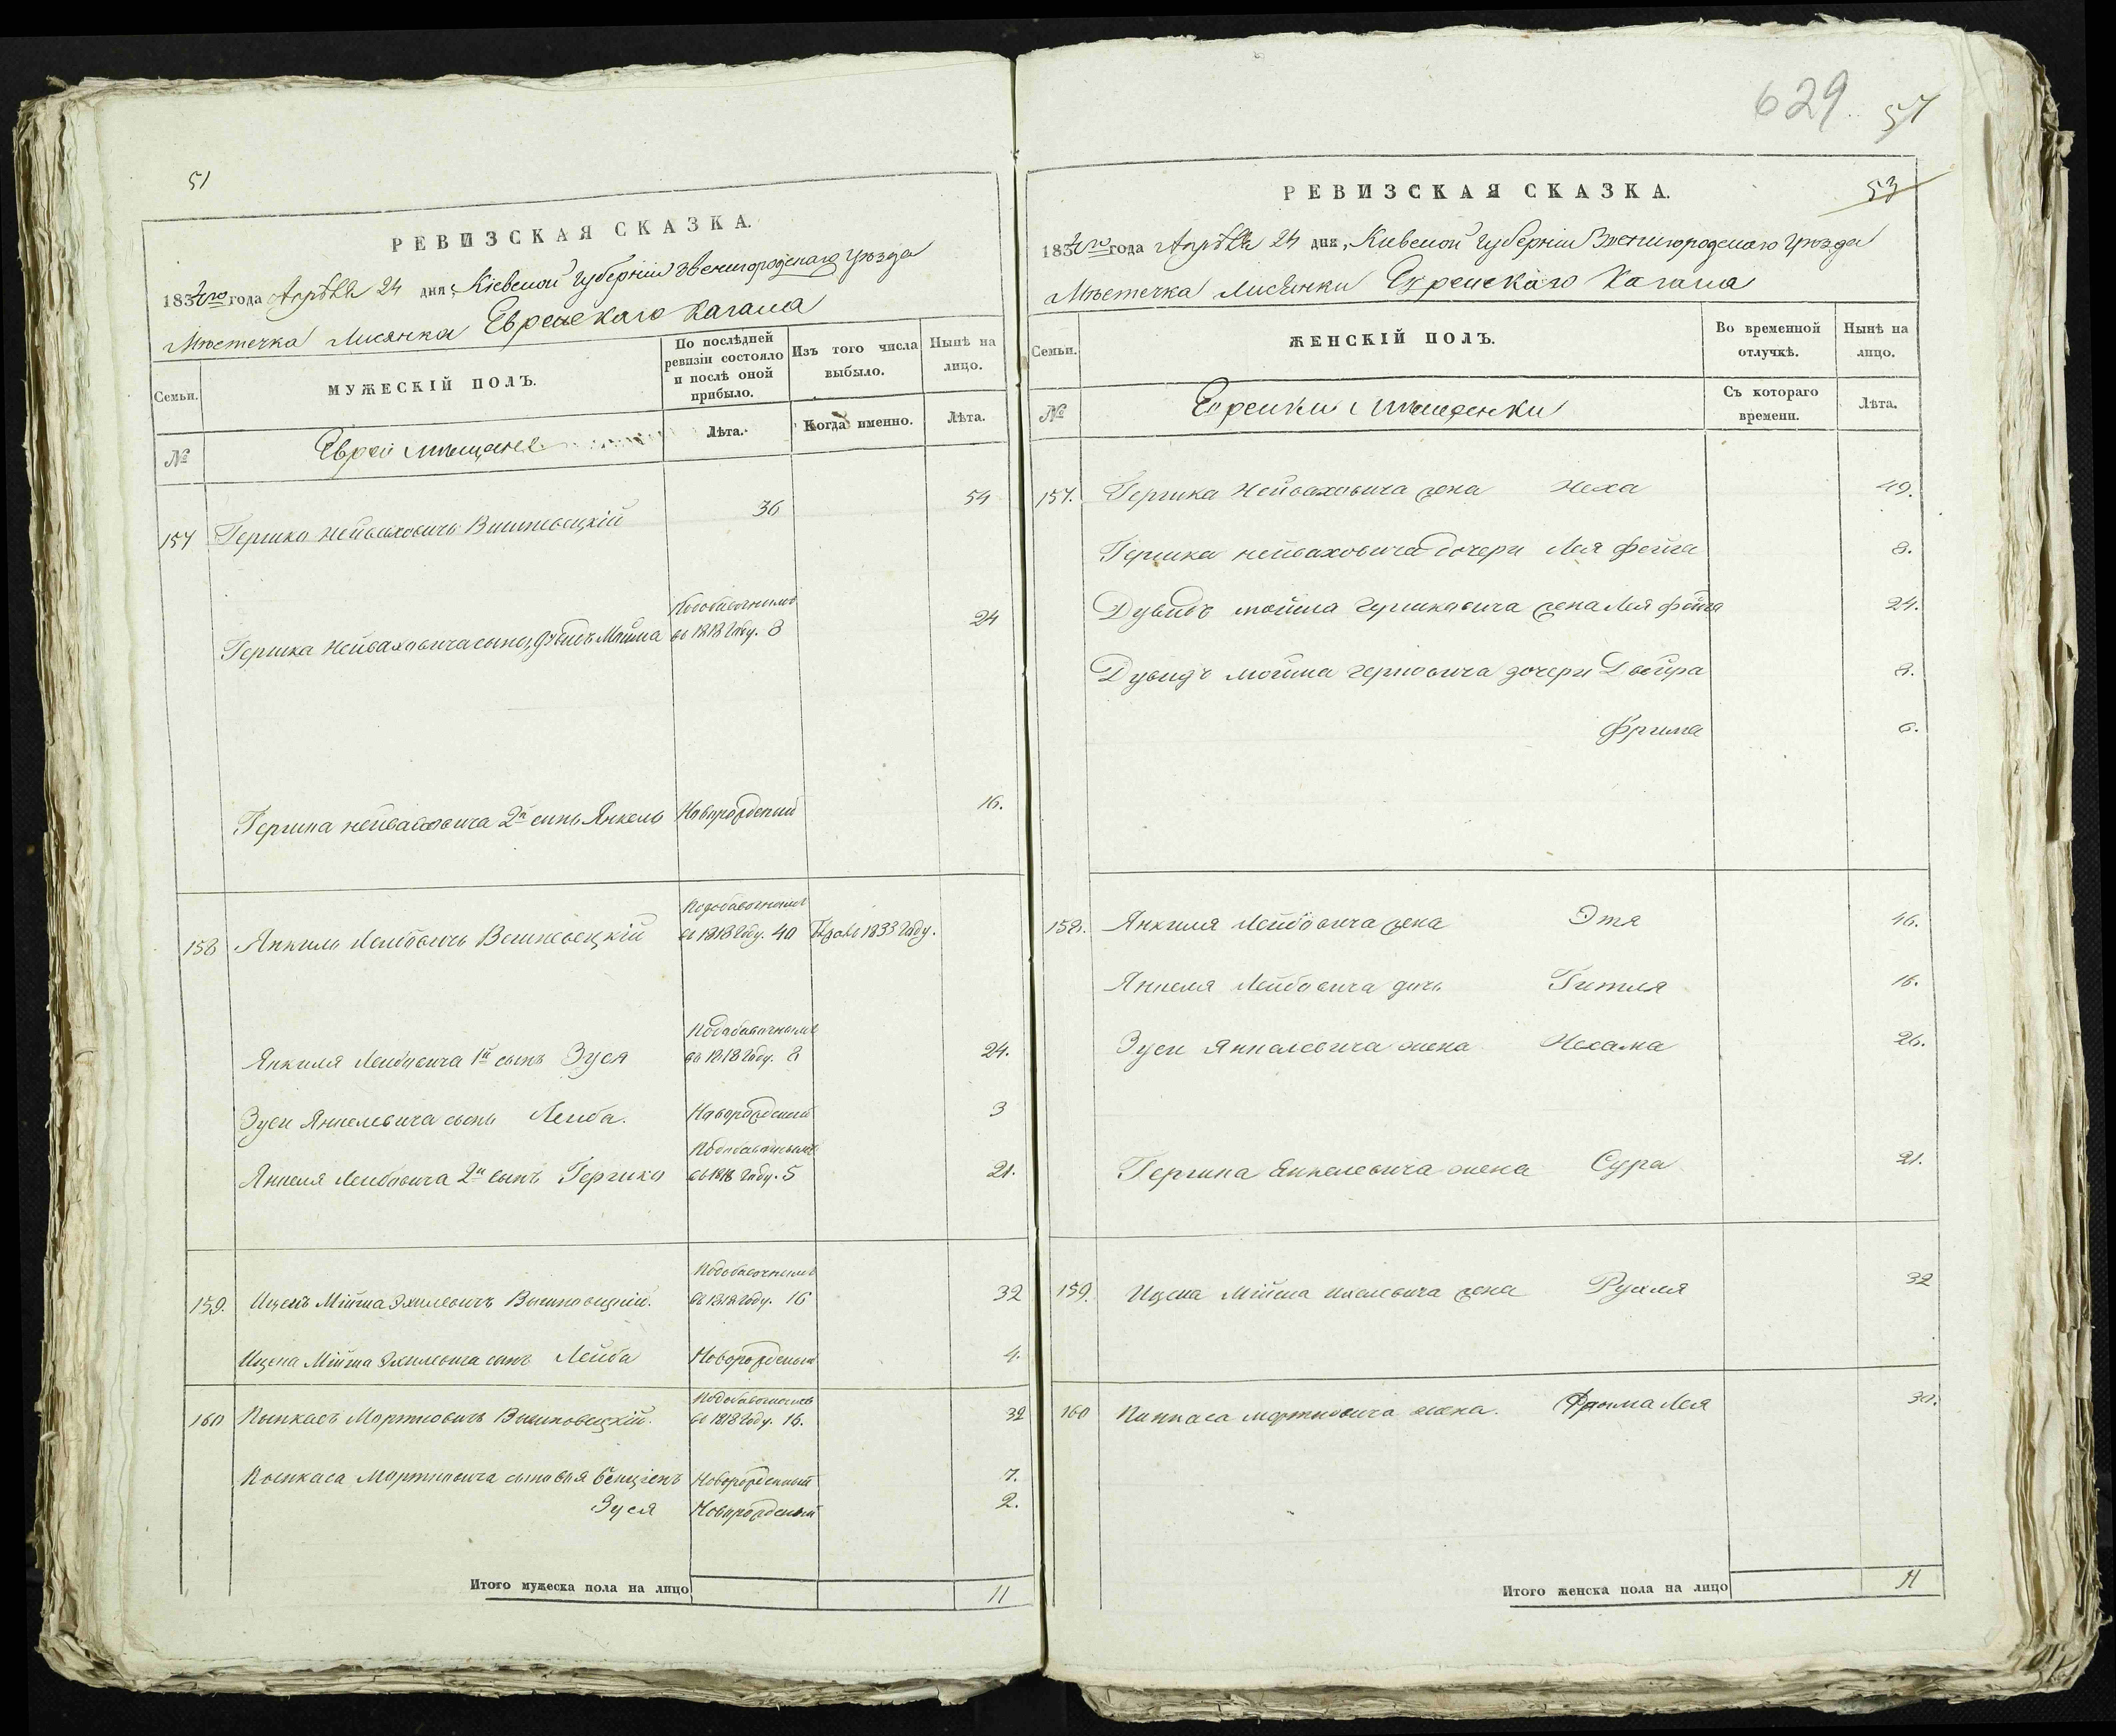 51
РЕВИЗСКАЯ СКАЗКА.
1834го года Апрѣля 24 дня, Кіевской Губерніи Звенигородскаго уѣзда
Мѣстечка Лисянки Еврейскаго Кагала
Семьи.
МУЖЕСКІЙ ПОЛЪ.
По послѣдней ревизіи состояло и послѣ оной прибыло.
Изъ того числа выбыло.
Нынѣ на лицо.
№
Евреи мѣщане
Лѣта.
Когда именно.
Лѣта.
157 Гершко Нейваховичъ Вишневецкій 36 54
Подобавочнымъ
Гершка Нейваховича сынъ, Дувидъ Мойша въ 1818 Году. 8 24
Гершка Нейваховича 2й сынъ Янкель Новорожденный 16.
Подобавочнымъ
158 Янкиль Лейбовичъ Вишневецкій въ 1818 Году. 40 въ 1833 Году.
Подобавочнымъ
Янкиля Лейбовича 1й сынъ Зуся въ 1818 Году. 8 24.
Зуси Янкелевича сынъ Лейба. Новорожденный 3
Подобавочнымъ
Янкеля Лейбовича 2й сынъ Гершко въ 1818 Году. 5 21.
Подобавочнымъ
159. Ицекъ Мойша Эхилевичъ Вишновецкій. въ 1818 Году. 16 32
Ицека Мойша Эхилевича сынъ Лейба Новорожденный 4.
Подобавочнымъ
160 Пынкасъ Мортковичъ Вишновецкій. въ 1818 Году. 16. 32
Пынкаса Мортковича сыновья Бенціенъ Новорожденный 7.
Зуся Новорожденный 2.
Итого мужеска пола на лицо 11
629. 57
53
РЕВИЗСКАЯ СКАЗКА.
1834го года Апрѣля 24 дня, Кіевской Губерніи Звенигородскаго уѣзда
Мѣстечка Лисянки Еврейскаго Кагала
Семьи.
ЖЕНСКІЙ ПОЛЪ.
Во временной отлучкѣ.
Нынѣ на лицо.
№
Еврейки Мѣщанки
Съ котораго времени.
Лѣта.
157. Гершка Нейваховича жена Неха 49.
Гершка Нейваховича дочери Лея Фейга 8.
Дувидъ Мойша Гершковича жена Лея Фейга 24.
Дувидъ Мойша Гершовича дочери Двойра 8.
Фрима 6.
158. Янкиля Лейбовича жена Этя 46.
Янкеля Лейбовича дочь Гитля 16.
Зуси Янкелевича жена Нехама 26.
Гершка Янкелевича жена Сура 21.
159. Ицека Мойша Ихелевича жена Рухля 32
160 Пинкаса Мортковича жена. Фрима Лея 30.
Итого женска пола на лицо 11